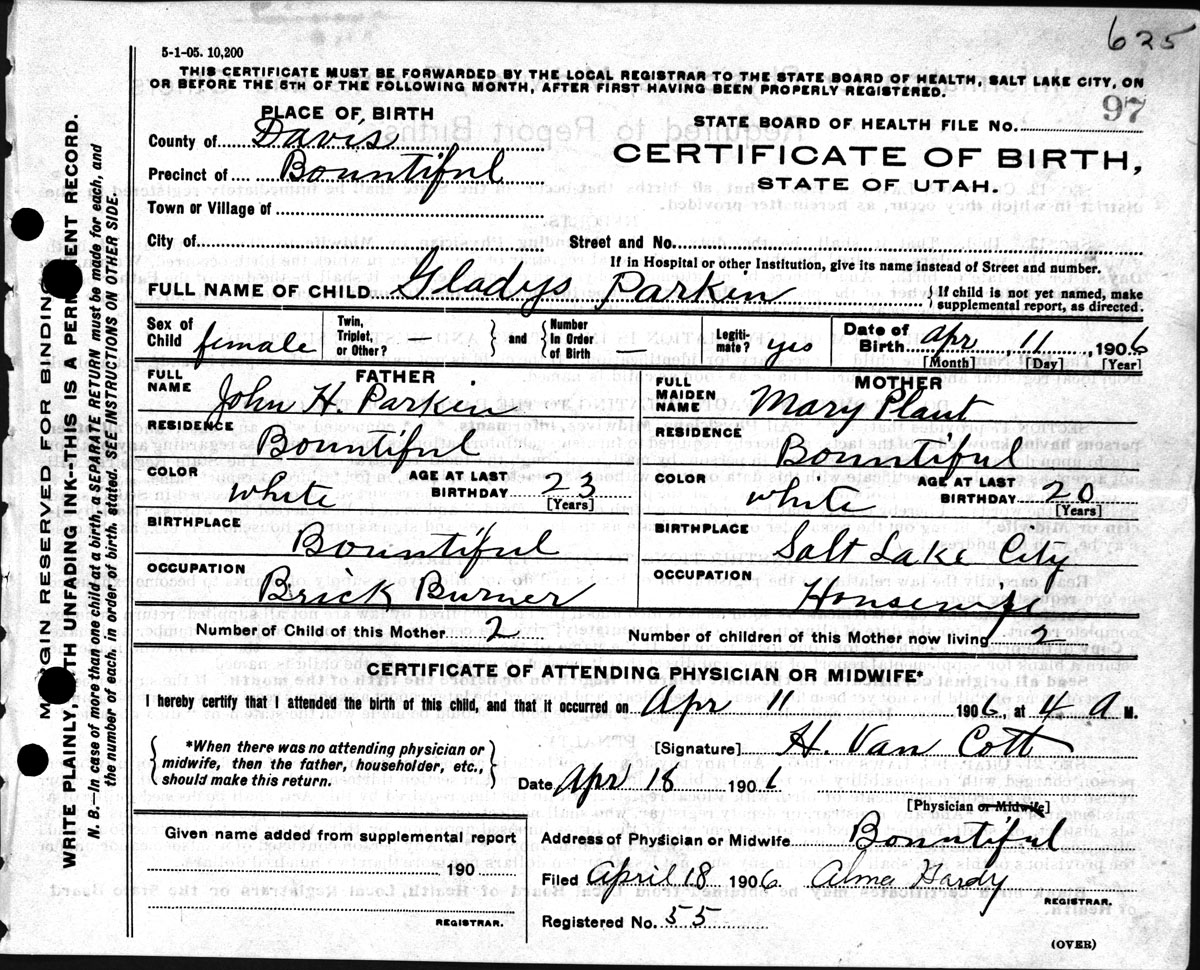 625
5-1-05. 10,200
THIS CERTIFICATE MUST BE FORWARDED BY THE LOCAL REGISTRAR TO THE STATE BOARD OF HEALTH, SALT LAKE CITY, ON
OR BEFORE THE 5TH OF THE FOLLOWING MONTH, AFTER FIRST HAVING BEEN PROPERLY REGISTERED.
PLACE OF BIRTH
STATE BOARD OF HEALTH FILE No. 97
County of Davis
CERTIFICATE OF BIRTH,
STATE OF UTAH.
Precinct of Bountiful
Town or Village of
City of Street and No.
If in Hospital or other Institution, give its name instead of Street and number.
FULL NAME OF CHILD Gladys Parkin { If child is not yet named, make
supplemental report, as directed.
Sex of
Child female
Twin,
Triplet,
or Other? —
} and { Number
In Order
of Birth —
Legiti-
mate? yes
Date of
Birth Apr 11, 1906
[Month] [Day] [Year]
FATHER
FULL
NAME John H. Parkin
RESIDENCE
Bountiful
COLOR
white
AGE AT LAST
BIRTHDAY 23
[Years]
BIRTHPLACE
Bountiful
OCCUPATION
Brick Burner
MOTHER
FULL
MAIDEN
NAME Mary Plant
RESIDENCE
Bountiful
COLOR
white
AGE AT LAST
BIRTHDAY 20
[Years]
BIRTHPLACE
Salt Lake City
OCCUPATION
Housewife
Number of Child of this Mother 2 Number of children of this Mother now living 2
CERTIFICATE OF ATTENDING PHYSICIAN OR MIDWIFE*
I hereby certify that I attended the birth of this child, and that it occurred on Apr 11 1906, at 4 A M.
{ *When there was no attending physician or
midwife, then the father, householder, etc.,
should make this return. }
[Signature] H. Van Cott
Date Apr 18 1906
[Physician or Midwife]
Given name added from supplemental report
190
REGISTRAR.
Address of Physician or Midwife Bountiful
Filed April 18 1906. Alma Hardy
REGISTRAR.
Registered No. 55
(OVER)
MARGIN RESERVED FOR BINDING
WRITE PLAINLY, WITH UNFADING INK--THIS IS A PERMANENT RECORD.
N. B.—In case of more than one child at a birth a SEPARATE RETURN must be made for each, and
the number of each, in order of birth, stated. SEE INSTRUCTIONS ON OTHER SIDE.